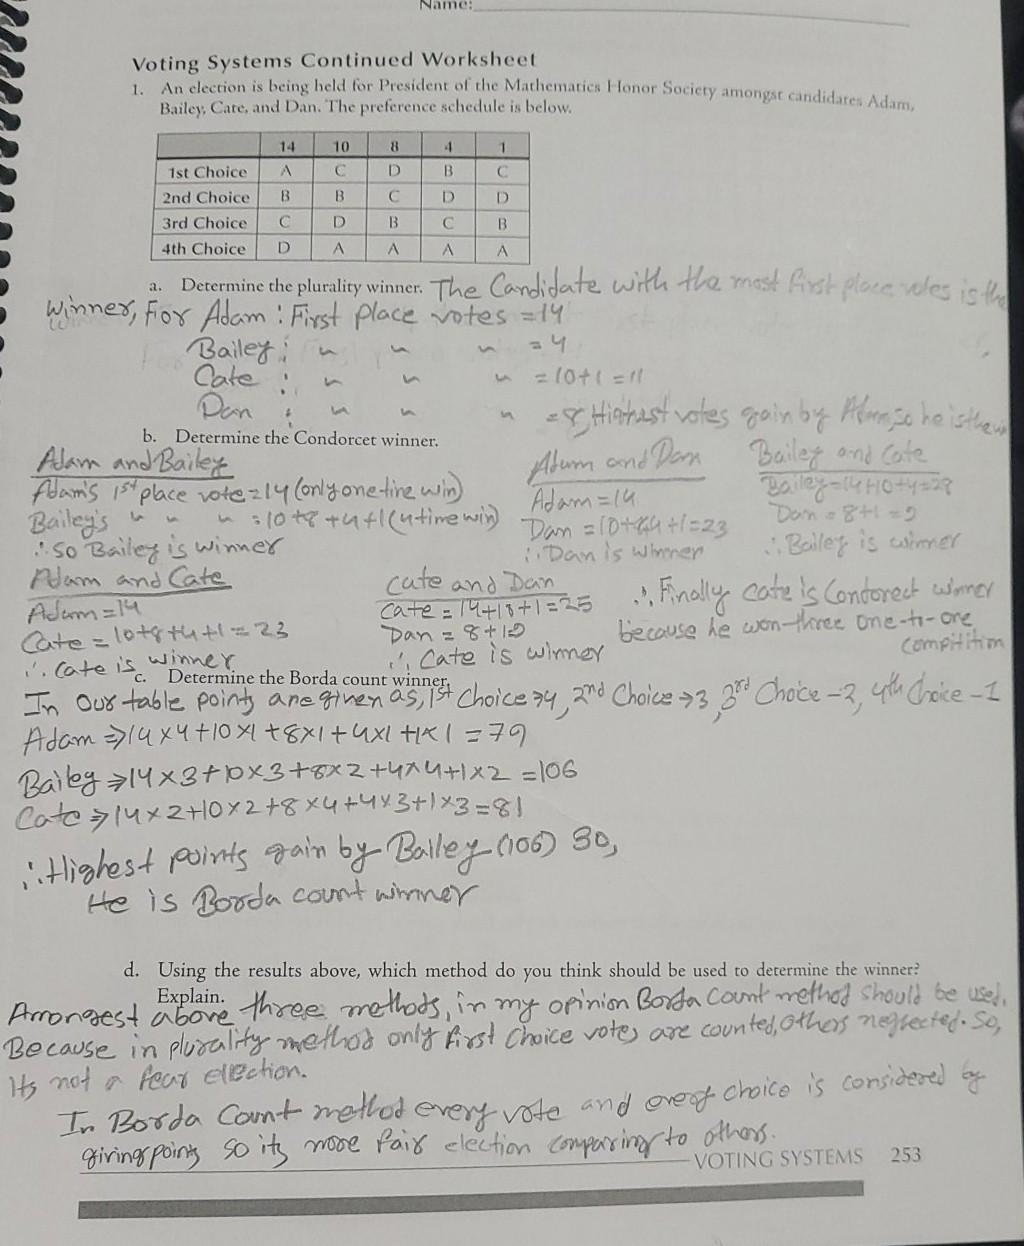 Name:
Voting Systems Continued Worksheet
1. An election is being held for President of the Mathematics Honor Society amongst candidates Adam,
Bailey, Cate, and Dan. The preference schedule is below.
14 10 8 4 1
1st Choice A C D B C
2nd Choice B B C D D
3rd Choice C D B C B
4th Choice D A A A A
a. Determine the plurality winner. The Candidate with the most first place votes is the
winner, For Adam : First place votes = 14
Bailey : " " " = 4
Cate : " " " = 10+1 = 11
Dan : " " " = 8, Highest votes gain by Adam, so he is the
b. Determine the Condorcet winner.
Adam and Bailey
Adam's 1st place vote = 14 (only one time win)
Bailey's " " " = 10+8+4+1 (4 time win)
∴ So Bailey is winner
Adam and Dan
Adam = 14
Dan = 10+8+4+1 = 23
∴ Dan is winner
Bailey and Cate
Bailey = 14+10+4 = 28
Dan = 8+1 = 9
∴ Bailey is winner
Adam and Cate
Adam = 14
Cate = 10+8+4+1 = 23
∴ Cate is winner
Cate and Dan
Cate = 14+10+1 = 25
Dan = 8+
∴ Cate is winner
∴ Finally cate is Contorect winner
because he won three one-ti-one
compitition
c. Determine the Borda count winner.
In our table points are given as, 1st Choice → 4, 2nd Choice → 3, 3rd Choice - 2, 4th Choice - 1
Adam ⇒ 14×4+10×1+8×1+4×1+1×1 = 79
Bailey ⇒ 14×3+10×3+8×2+4×4+1×2 = 106
Cate ⇒ 14×2+10×2+8×4+4×3+1×3 = 81
∴ Highest points gain by Bailey (106) so,
He is Borda count winner
d. Using the results above, which method do you think should be used to determine the winner?
Explain.
Amongest above three methods, in my opinion Borda Count method should be used.
Because in plurality method only first choice votes are counted, others neglected. So,
its not a fear election.
In Borda Count method every vote and every choice is considered by
giving points so its more fair election comparing to others.
VOTING SYSTEMS 253